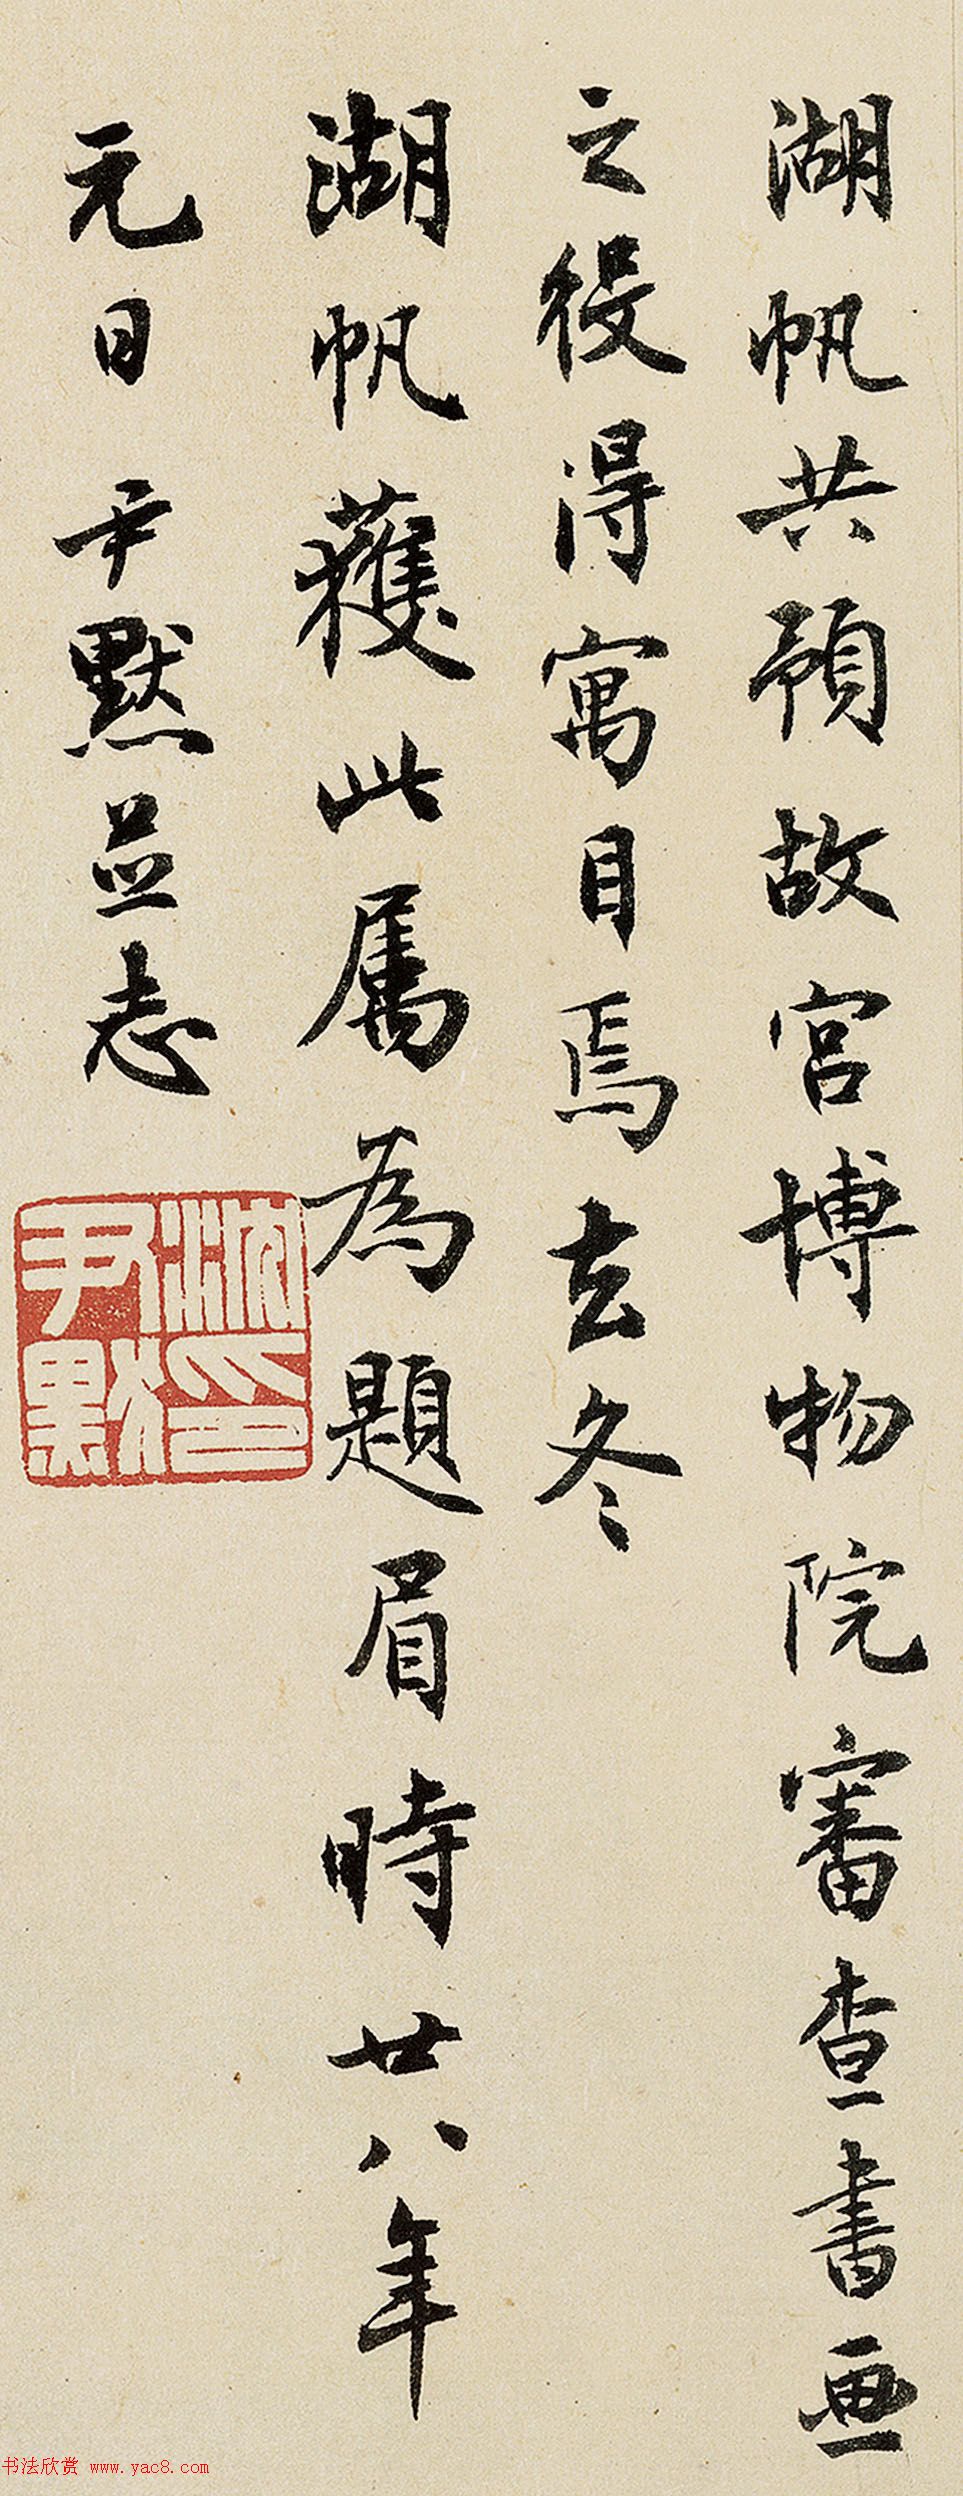 湖帆共預故宮博物院審查書画
之役得寓目焉去冬
湖帆獲此屬為題眉時廿八年
元日尹默並志
沈尹默印
书法欣赏 www.yac8.com